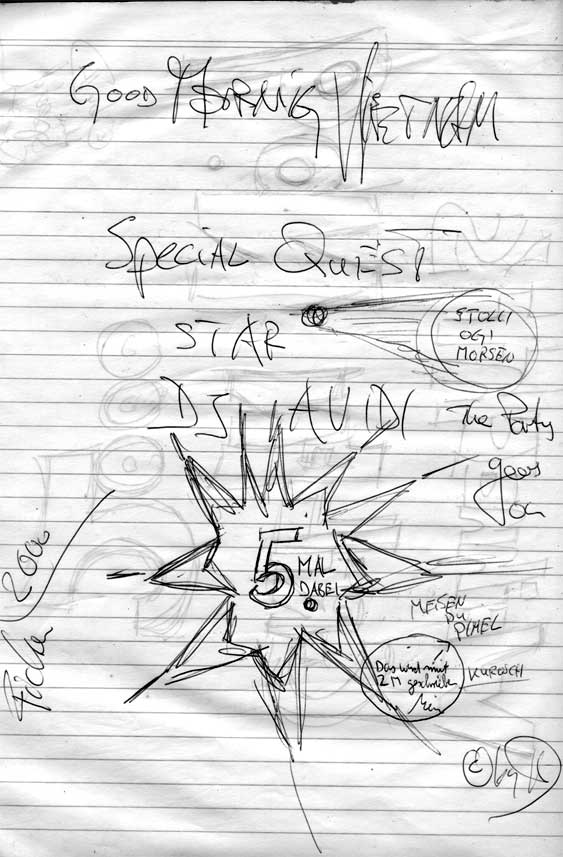 GOOD MORNING VIETNAM
SPECIAL QUEST
STAR
STOLLI
OGI
MORSEN
DJ AUDI The Party
goes
on
5 MAL
DABEI
2000
MEISEN
DU
PIMEL
Das wird mit
2 M geschrieben
KUROSCH
© by